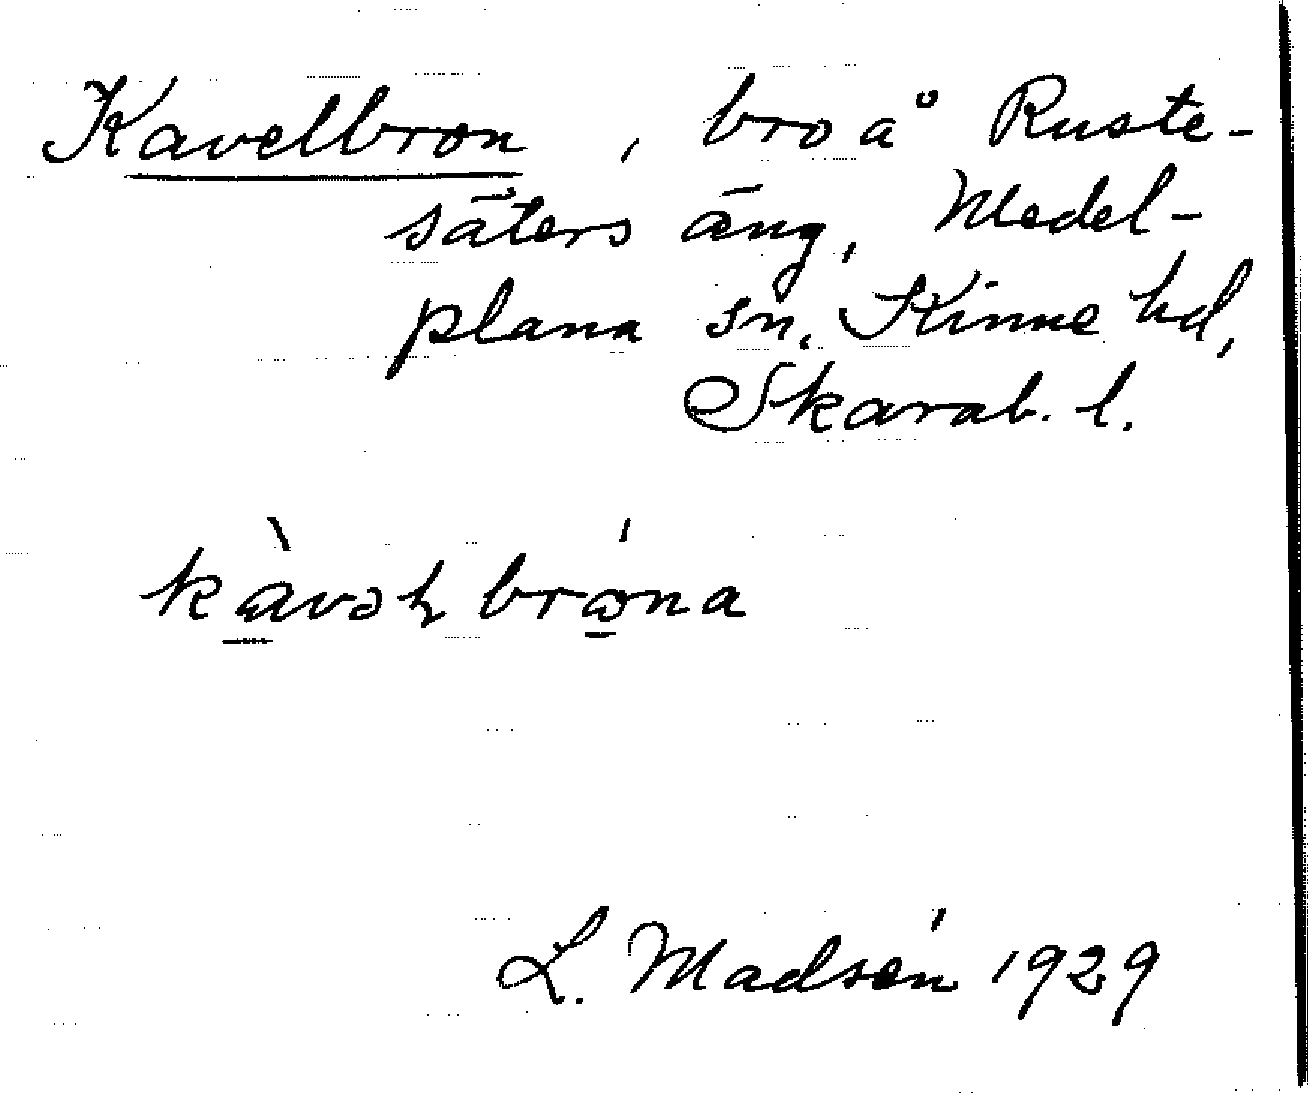 Kavelbron, bro å Ruste-
säters äng, Medel-
plana sn, Kinne hd,
Skarab. l.
kàvəɫ brǿna
L. Madsén 1929